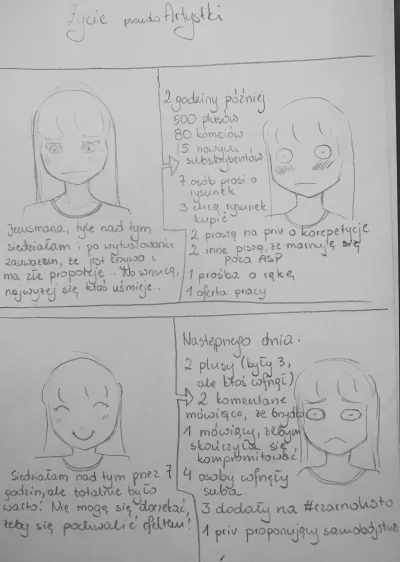 Życie pseudo Artystki
Jezusmaria, tyle nad tym
siedziałam i po wytuszowaniu
zauważam, że jest krzywo i
ma złe proporcje... No wrzucę,
najwyżej się ktoś uśmieje..
2 godziny później:
500 plusów
80 komciów
15 nowych
subskrybentów
7 osób prosi o
rysunek
3 chcą rysunek
kupić
2 proszą na priv o korepetycje
2 inne piszą, że marnuję się
poza ASP
1 prośba o rękę
1 oferta pracy
Siedziałam nad tym przez 7
godzin, ale totalnie było
warto! Nie mogę się doczekać,
żeby się pochwalić efektem!
Następnego dnia:
2 plusy (były 3,
ale ktoś cofnął)
2 komentarze
mówiące, że brzydko
1 mówiący, żebym
skończyła się
kompromitować
4 osoby cofnęły
suba
3 dodały na #czarnolisto
1 priv proponujący samobójstwo